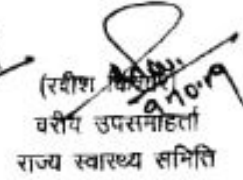 (रवीश किशोर)
9.10.19
वरीय उपसमाहर्ता
राज्य स्वास्थ्य समिति